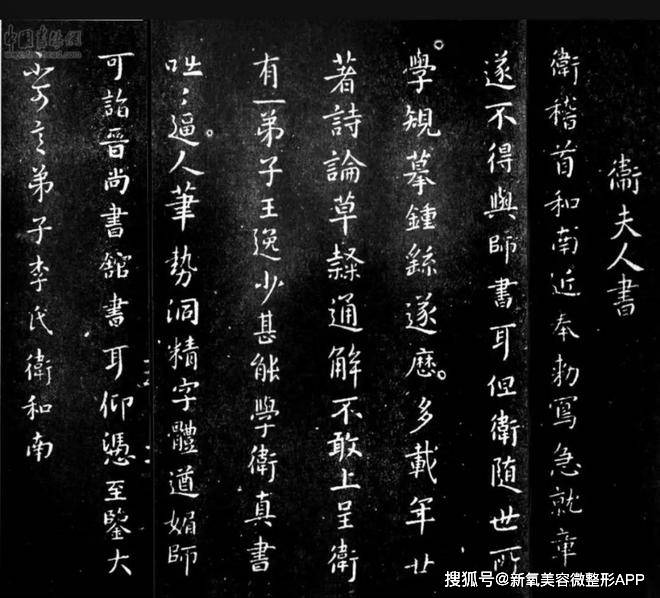 衛夫人書
衛稽首和南近奉勅寫急就章
遂不得與師書耳但衛隨世所
學規摹鍾繇遂歷多載年廿
著詩論草隸通解不敢上呈衛
有一弟子王逸少甚能學衛真書
咄〻逼人筆勢洞精字體遒媚師
可詣晉尚書館書耳仰憑至鑒大
不可言弟子李氏衛和南
中國書法網
搜狐号@新氧美容微整形APP